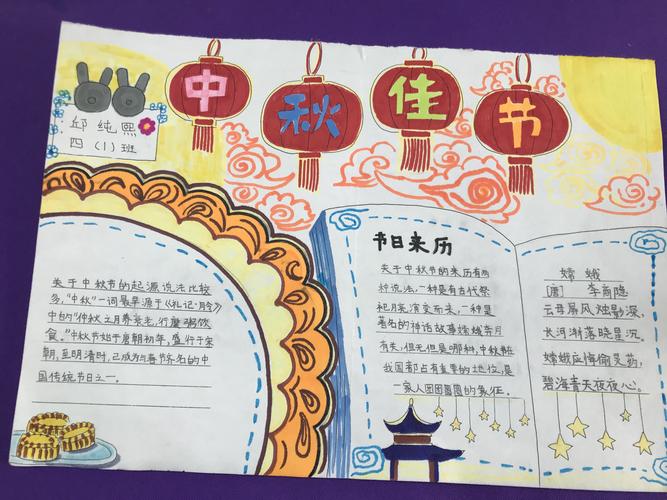 中秋佳节
邱纯熙
四(1)班
关于中秋节的起源说法比较
多,"中秋"一词最早源于《礼记·月令》
中的"仲秋之月养衰老,行糜粥饮
食。"中秋节始于唐朝初年,盛行于宋
朝,至明清时,已成为与春节齐名的中
国传统节日之一。
节日来历
关于中秋节的来历有两
种说法,一种是有古代祭
祀月来演变而来,一种是
著名的神话故事嫦娥奔月
有关,但无但是哪种,中秋节在
我国都占有重要的地位,是
一家人团团圆圆的象征。
嫦娥
[唐] 李商隐
云母屏风烛影深,
长河渐落晓星沉。
嫦娥应悔偷灵药,
碧海青天夜夜心。